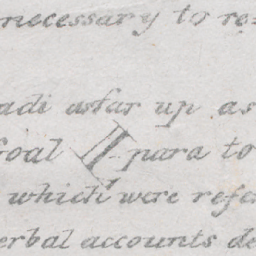 necessary to re
adi as far up as
Goal para to
which were refe
erbal accounts de